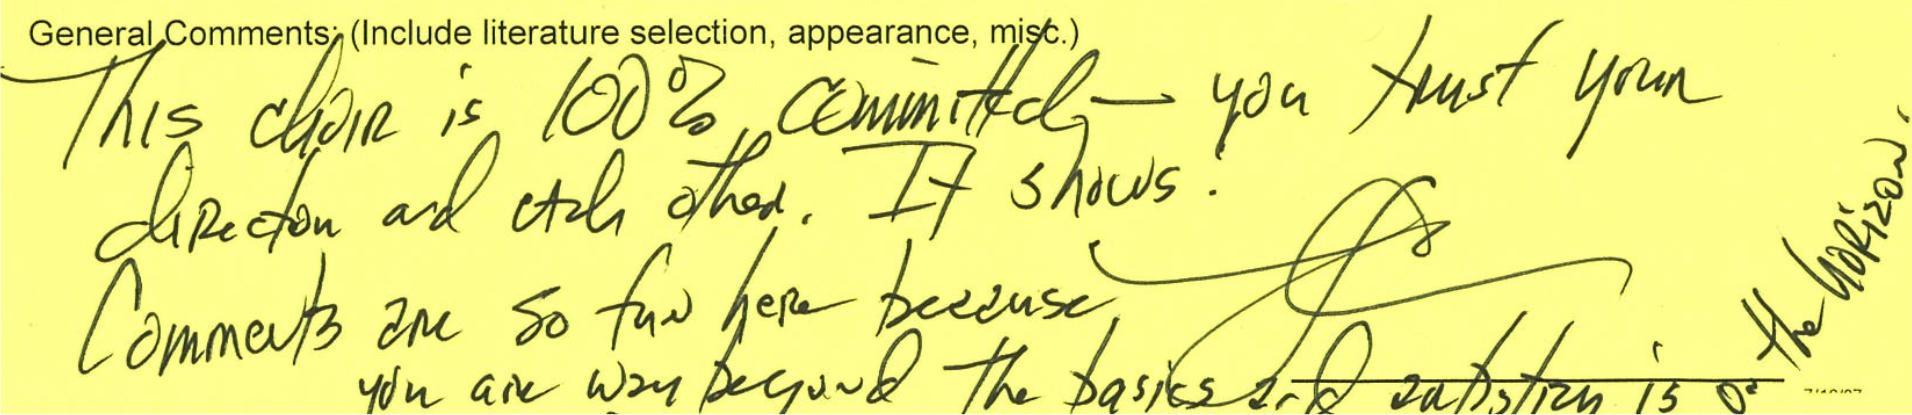 General Comments: (Include literature selection, appearance, misc.)
This choir is 100% committed — you trust your
director and each other. It shows.
Comments are so fun here because
you are way beyond the basics and artistry is on
the horizon.